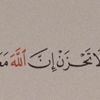 لَا تَحْزَنْ إِنَّ اللَّهَ